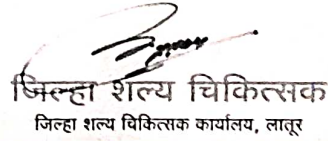 जिल्हा शल्य चिकित्सक
जिल्हा शल्य चिकित्सक कार्यालय, लातूर